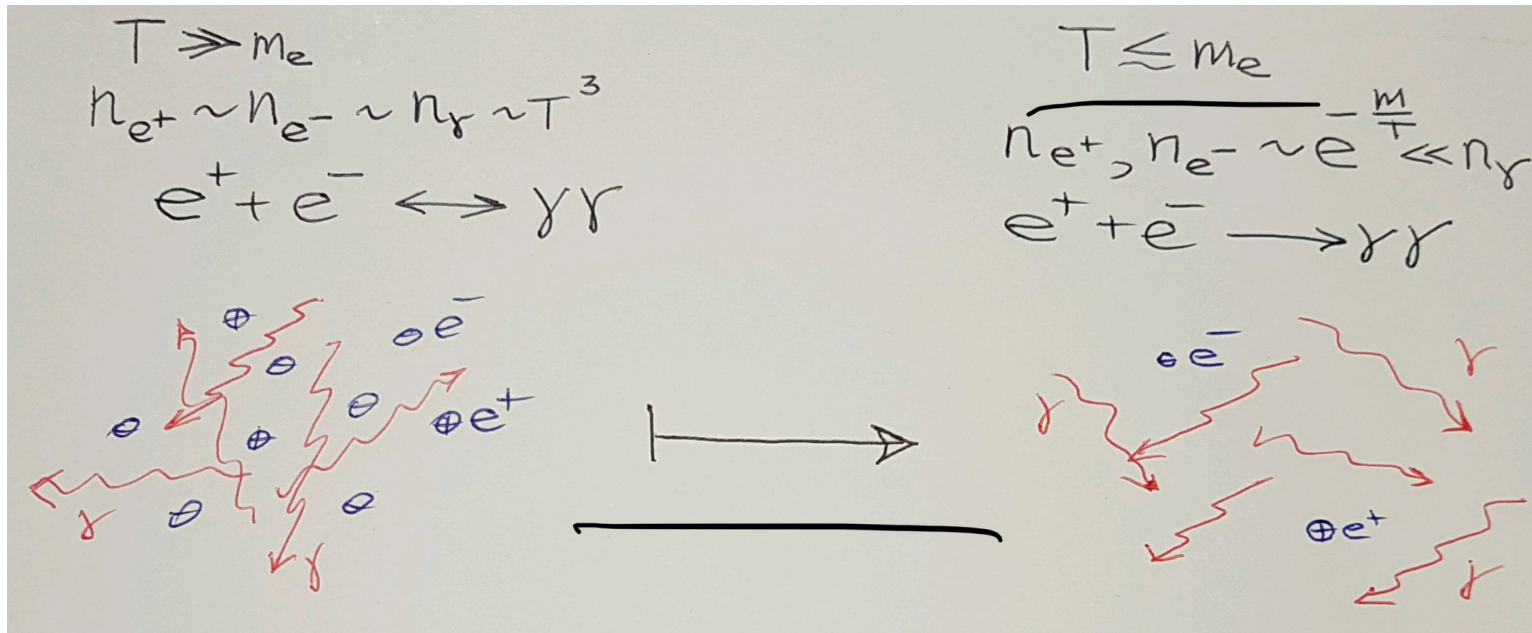 T ≫ mₑ
nₑ⁺ ~ nₑ⁻ ~ nᵧ ~ T³
e⁺ + e⁻ ⟷ γγ
T ≲ mₑ
nₑ⁺, nₑ⁻ ~ e^{-m/T} ≪ nᵧ
e⁺ + e⁻ ⟶ γγ
e⁻
e⁺
γ
γ
e⁻
γ
γ
e⁺
γ